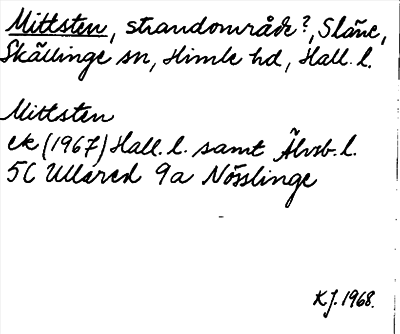 Mittsten, strandområde?, Släne,
Skällinge sn, Himle hd, Hall. l.
Mittsten
ek (1967) Hall. l. samt Älvsb. l.
5C Ullared 9a Nösslinge
KJ. 1968.